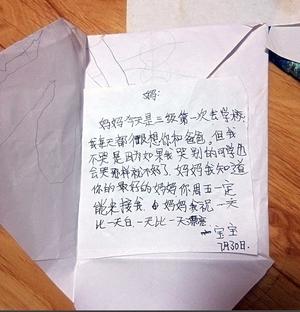 妈:
妈妈今天是三级第一次去学校
我每天都很想你和爸爸,但我
不哭是因为如果我哭别的同学也
会哭那样就不好了.妈妈我知道
你的最好的妈妈你周五一定
能来接我.妈妈我祝一天
比一天白一天比一天漂亮
宝宝
7月30日.